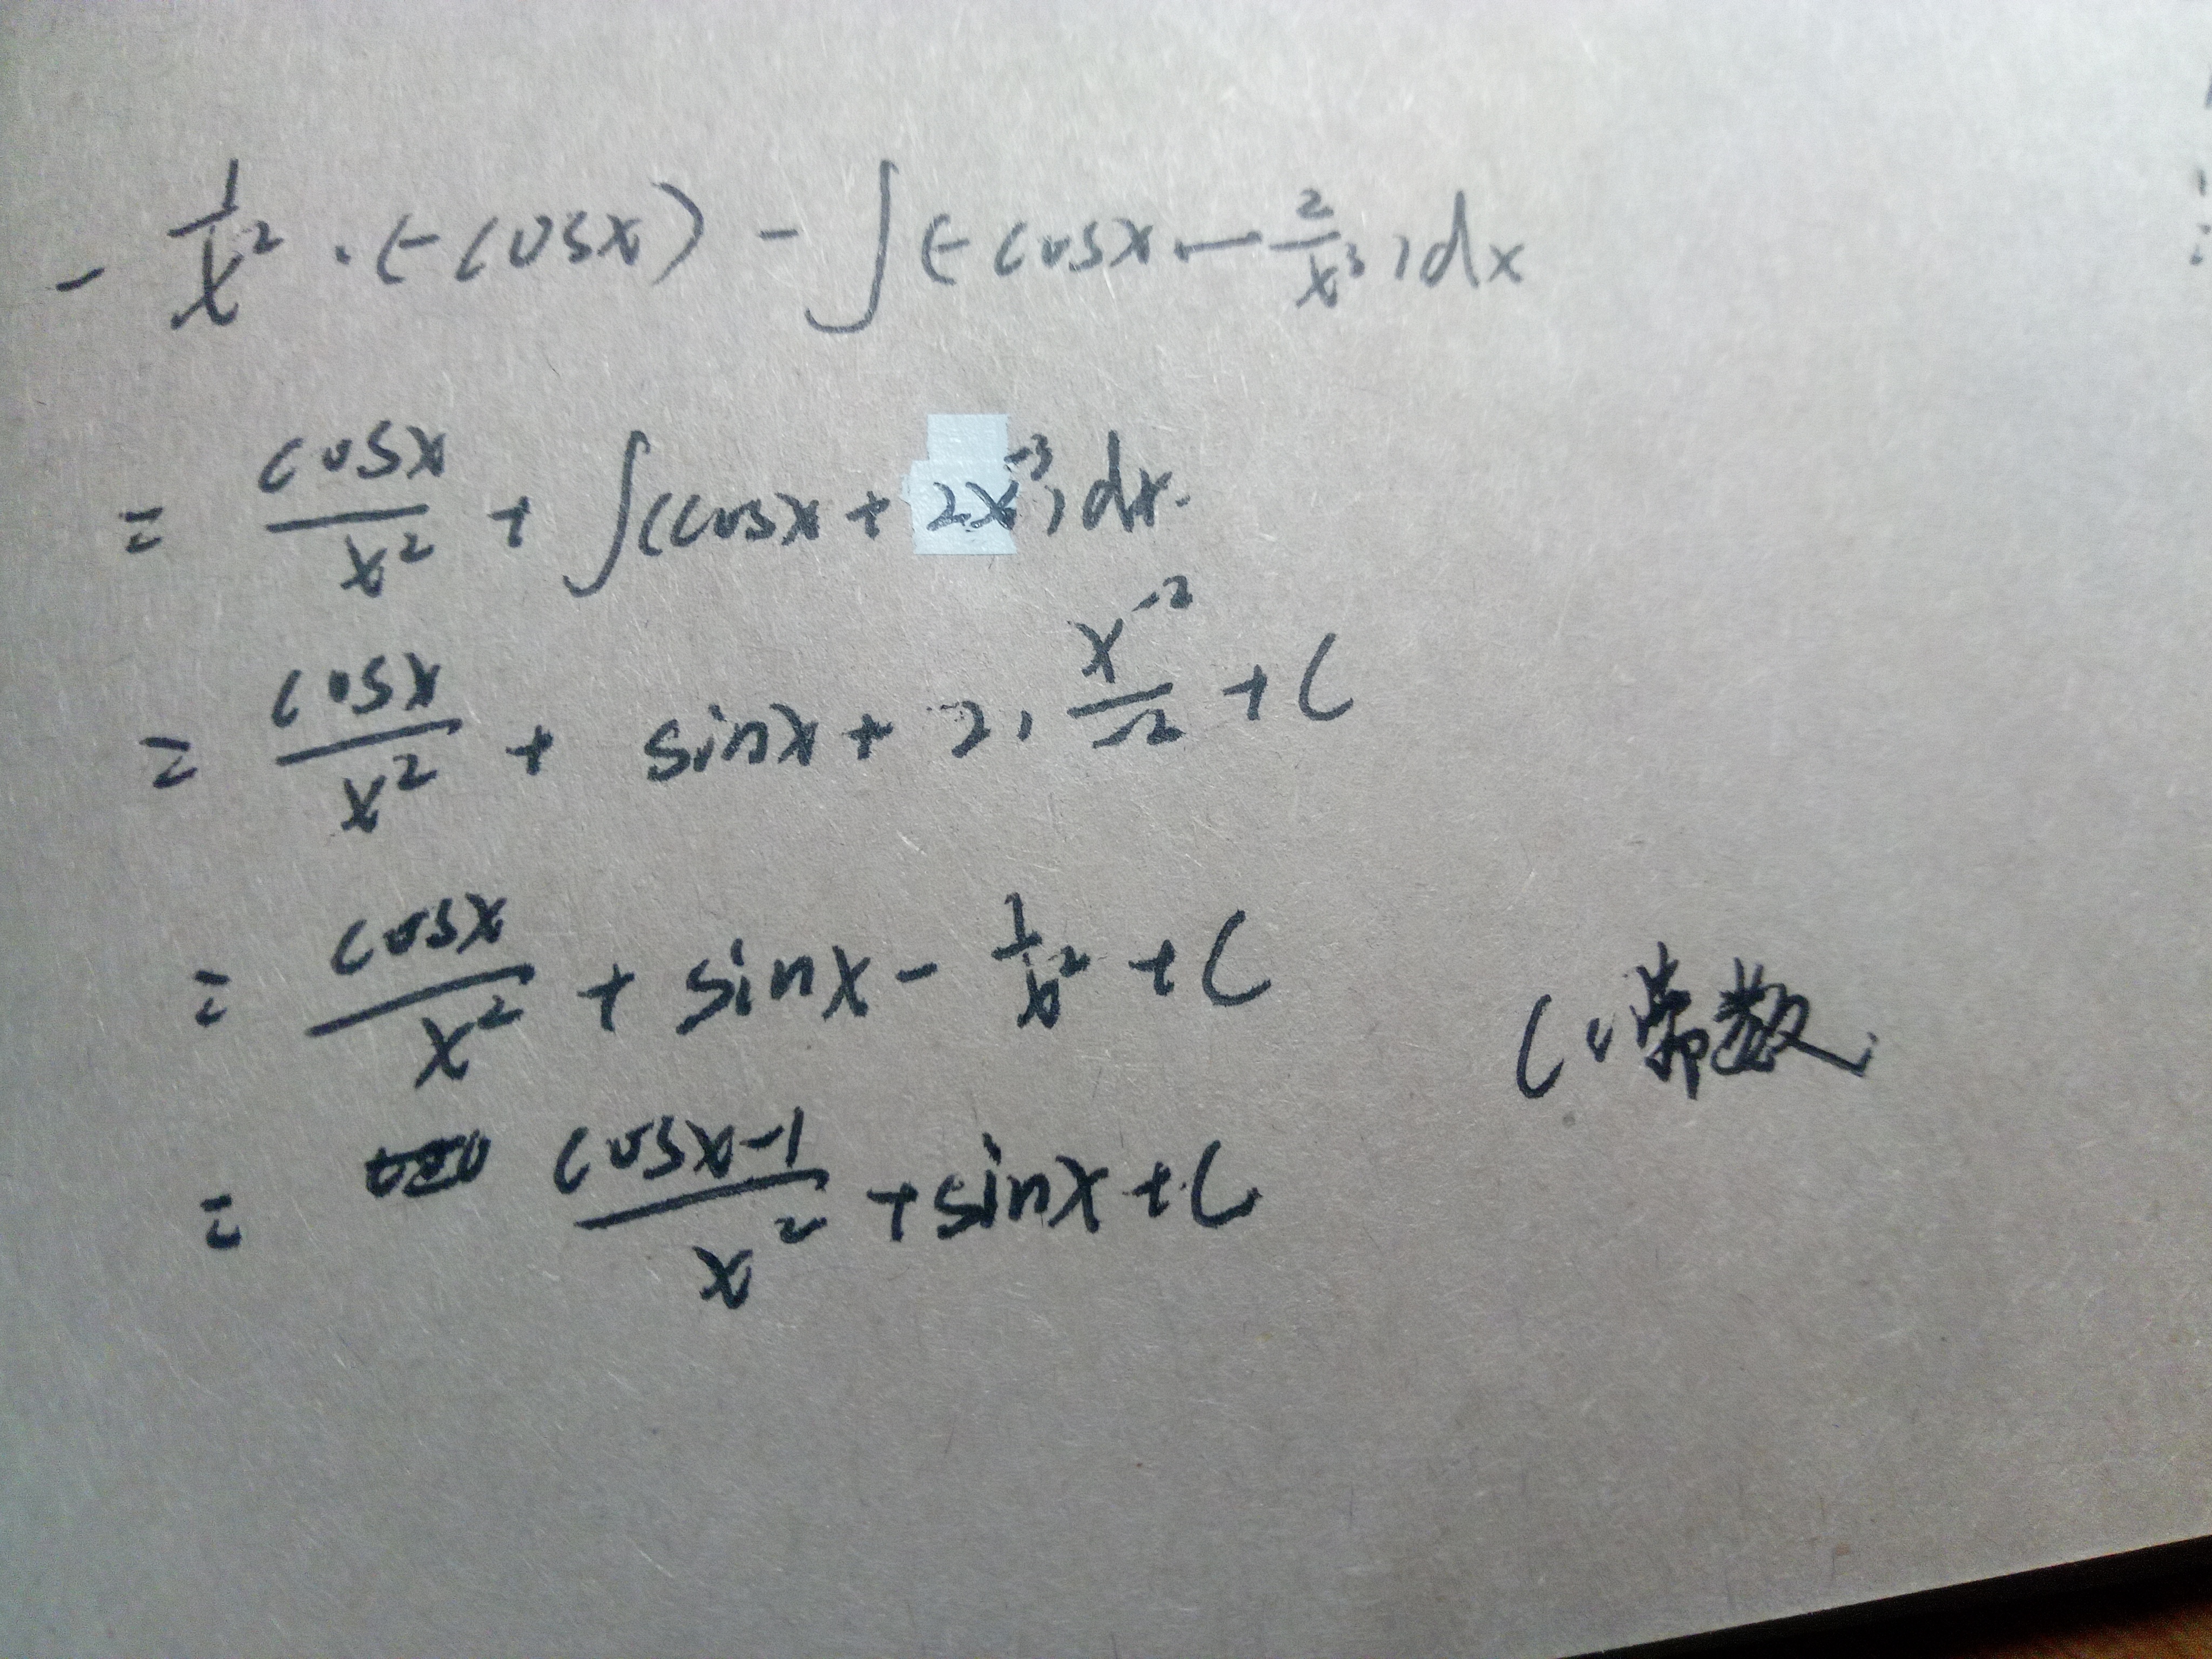 - 1/x² · (-cosx) - ∫(-cosx - 2/x³)dx
= cosx/x² + ∫(cosx + 2x⁻³)dx.
= cosx/x² + sinx + 2 · x⁻²/-2 + C
= cosx/x² + sinx - 1/x² + C
C:常数
= cosx-1/x² + sinx + C